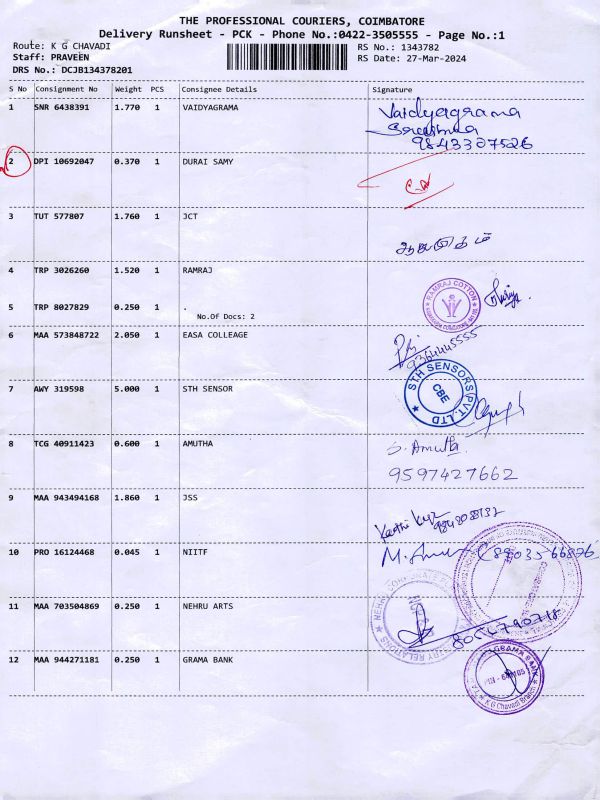 THE PROFESSIONAL COURIERS, COIMBATORE
Delivery Runsheet - PCK - Phone No.:0422-3505555 - Page No.:1
Route: K G CHAVADI
RS No.: 1343782
Staff: PRAVEEN
RS Date: 27-Mar-2024
DRS No.: DCJB134378201
S No Consignment No Weight PCS Consignee Details Signature
1 SNR 6438391 1.770 1 VAIDYAGRAMA
Vaidyagrama
9843327526
2 DPI 10692047 0.370 1 DURAI SAMY
3 TUT 577807 1.760 1 JCT
4 TRP 3026260 1.520 1 RAMRAJ
RAMRAJ COTTON
5 TRP 8027829 0.250 1 .
No.Of Docs: 2
6 MAA 573848722 2.050 1 EASA COLLEAGE
9364445555
7 AWY 319598 5.000 1 STH SENSOR
STH SENSORS PVT. LTD
CBE
8 TCG 40911423 0.600 1 AMUTHA
S. Amutha
9597427662
9 MAA 943494168 1.860 1 JSS
10 PRO 16124468 0.045 1 NIITF
11 MAA 703504869 0.250 1 NEHRU ARTS
12 MAA 944271181 0.250 1 GRAMA BANK
K G Chavadi Branch